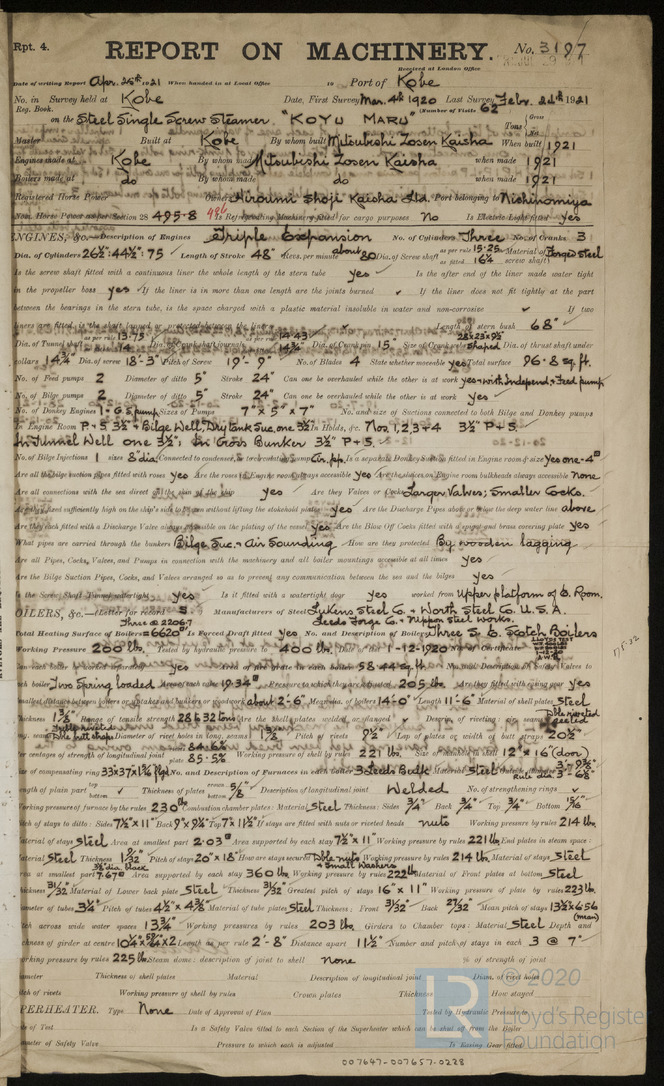 Rpt. 4.
REPORT ON MACHINERY.
No. 3197
Received at London Office
Date of writing Report Apr. 25th 1921 When handed in at Local Office to Port of Kobe
No. in Survey held at Kobe Date, First Survey Mar. 4th 1920 Last Survey Febr. 24th 1921
Reg. Book. (Number of Visits 62)
on the Steel Single Screw Steamer, "KOYU MARU"
Tons Gross Net
Master Built at Kobe By whom built Mitsubishi Zosen Kaisha When built 1921
Engines made at Kobe By whom made Mitsubishi Zosen Kaisha when made 1921
Boilers made at do By whom made do when made 1921
Registered Horse Power Owners Hiroumi Shoji Kaisha Ltd. Port belonging to Nishinomiya
Nom. Horse Power as per Section 28 495.8 496 Is Refrigerating Machinery fitted for cargo purposes No Is Electric Light fitted yes
ENGINES, &c.—Description of Engines Triple Expansion No. of Cylinders Three No. of Cranks 3
Dia. of Cylinders 26½":44½":75 Length of Stroke 48" Revs. per minute about 80 Dia. of Screw shaft as per rule 15.25 as fitted 16¼ Material of screw shaft Forged Steel
Is the screw shaft fitted with a continuous liner the whole length of the stern tube yes Is the after end of the liner made water tight
in the propeller boss yes If the liner is in more than one length are the joints burned If the liner does not fit tightly at the part
between the bearings in the stern tube, is the space charged with a plastic material insoluble in water and non-corrosive If two
Length of stern bush 68"
collars 14¾ Dia. of screw 18'-3" Pitch of Screw 19'-9" No. of Blades 4 State whether moveable yes Total surface 96.8 sq. ft.
No. of Feed pumps 2 Diameter of ditto 5" Stroke 24" Can one be overhauled while the other is at work yes with Independ. Feed pump
No. of Bilge pumps 2 Diameter of ditto 5" Stroke 24" Can one be overhauled while the other is at work yes
No. of Donkey Engines 1-G.S. pump Sizes of Pumps 7" x 5" x 7" No. and size of Suctions connected to both Bilge and Donkey pumps
In Engine Room P+S 3½ + Bilge Well, Dry tank Suc. one 3½ In Holds, &c. Nos. 1,2,3+4 3½" P+S
In Tunnel Well one 3½", in Cross Bunker 3½" P+S.
No. of Bilge Injections 1 sizes 8" dia. Connected to condenser, or to circulating pump Cir. pp. Is a separate Donkey Suction fitted in Engine room & size yes one-4"
Are all the bilge suction pipes fitted with roses yes Are the roses in Engine room always accessible yes Are the sluices on Engine room bulkheads always accessible None
Are all connections with the sea direct on the skin of the ship yes Are they Valves or Cocks Larger Valves; Smaller Cocks.
Are they fixed sufficiently high on the ship's side to be seen without lifting the stokehold plates yes Are the Discharge Pipes above or below the deep water line above
Are they each fitted with a Discharge Valve always accessible on the plating of the vessel yes Are the Blow Off Cocks fitted with a spigot and brass covering plate yes
What pipes are carried through the bunkers Bilge Suc. + Air Sounding How are they protected By wooden lagging
Are all Pipes, Cocks, Valves, and Pumps in connection with the machinery and all boiler mountings accessible at all times yes
Are the Bilge Suction Pipes, Cocks, and Valves arranged so as to prevent any communication between the sea and the bilges yes
Is the Screw Shaft Tunnel watertight yes Is it fitted with a watertight door yes worked from Upper platform of E. Room.
BOILERS, &c.—(Letter for record S) Manufacturers of Steel Lukens Steel Co. + Worth Steel Co. U.S.A.
Leeds Forge Co. + Nippon Steel works.
Three @ 2206.7
Total Heating Surface of Boilers =6620 Is Forced Draft fitted yes No. and Description of Boilers Three S. E. Scotch Boilers
Working Pressure 200 lbs. Tested by hydraulic pressure to 400 lbs. Date of test 1-12-1920
yes 58.44 sq. ft. No. and Description of Safety Valves to
each boiler Two Spring loaded Area of each valve 19.34" Pressure to which they are adjusted 205 lbs. Are they fitted with easing gear yes
Smallest distance between boilers or uptakes and bunkers or woodwork about 2'-6" Mean dia. of boilers 14'-0" Length 11'-6" Material of shell plates Steel
Thickness 1⅜ Range of tensile strength 28 & 32 tons Are the shell plates welded or flanged Descrip. of riveting: cir. seams Dble riveted
Dble butt straps Diameter of rivet holes in long. seams Pitch of rivets 9½ Lap of plates or width of butt straps 20½"
Per centages of strength of longitudinal joint plate 85.5% Working pressure of shell by rules 221 lbs. Size of manhole in shell 12"x16" (door)
Size of compensating ring 33x37x1⅜ flgd No. and Description of Furnaces in each boiler Material Steel
Length of plain part Thickness of plates Description of longitudinal joint Welded No. of strengthening rings
Working pressure of furnace by the rules 230 lbs Combustion chamber plates: Material Steel Thickness: Sides ¾ Back ¾ Top ¾ Bottom 15/16
Pitch of stays to ditto: Sides 7½"x11" Back 9"x9¼" Top 7"x11½" If stays are fitted with nuts or riveted heads nuts Working pressure by rules 214 lbs.
Material of stays Steel Area at smallest part 2.03" Area supported by each stay 7½"x11" Working pressure by rules 221 lbs. End plates in steam space:
Material Steel Thickness 1 5/32 Pitch of stays 20"x18" How are stays secured Dble nuts + Small Washers Working pressure by rules 214 lbs. Material of stays Steel
Area at smallest part 7.67" Area supported by each stay 360 Working pressure by rules 222 lbs Material of Front plates at bottom Steel
Thickness 31/32 Material of Lower back plate Steel Thickness 31/32 Greatest pitch of stays 16"x11" Working pressure of plate by rules 223 lbs.
Diameter of tubes 3¼" Pitch of tubes 4½"x4⅜" Material of tube plates Steel Thickness: Front 31/32 Back 27/32 Mean pitch of stays (mean)
Pitch across wide water spaces 13¾" Working pressures by rules 203 lbs. Girders to Chamber tops: Material Steel Depth and
thickness of girder at centre Length as per rule 2'-8" Distance apart 11½" Number and pitch of stays in each 3 @ 7"
Working pressure by rules 225 lbs. Steam dome: description of joint to shell None % of strength of joint
Diameter Thickness of shell plates Material Description of longitudinal joint Diam. of rivet holes
Pitch of rivets Working pressure of shell by rules Crown plates Thickness How stayed
SUPERHEATER. Type None Date of Approval of Plan Tested by Hydraulic Pressure to
Date of Test Is a Safety Valve fitted to each Section of the Superheater which can be shut off from the Boiler
Diameter of Safety Valve Pressure to which each is adjusted Is Easing Gear fitted
007647-007657-0228
© 2020
Lloyd's Register
Foundation